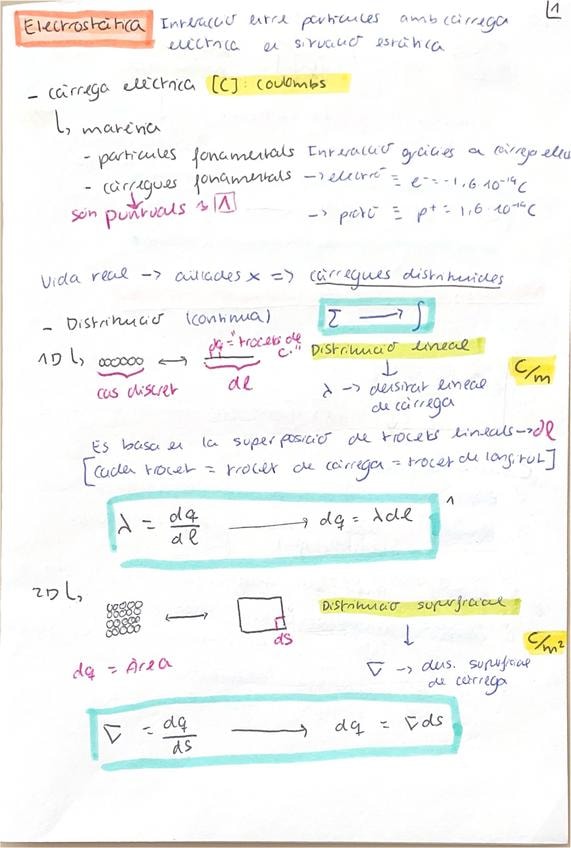 1
Electrostàtica Interacció entre partícules amb càrrega
elèctrica en situació estàtica
- càrrega elèctrica [C]: coulombs
↳ matèria
- partícules fonamentals Interacció gràcies a càrrega elec
- càrregues fonamentals → electró ≡ e⁻ = -1,6·10⁻¹⁹ C
són puntuals → 1 → protó ≡ p⁺ = 1,6·10⁻¹⁹ C
Vida real → aïllades x => càrregues distribuïdes
- Distribució (contínua) Σ → ∫
1D ↳ ↔ dq = "trocets de C." Distribució lineal
cas discret dl λ → densitat lineal
de càrrega
C/m
Es basa en la superposició de trocets lineals → dl
[cada trocet = trocet de càrrega = trocet de longitut]
λ = dq/dl → dq = λdl
2D ↳ ↔ dS Distribució superficial
C/m²
dq = Àrea ∇ → dens. superficial
de càrrega
∇ = dq/ds → dq = ∇ds